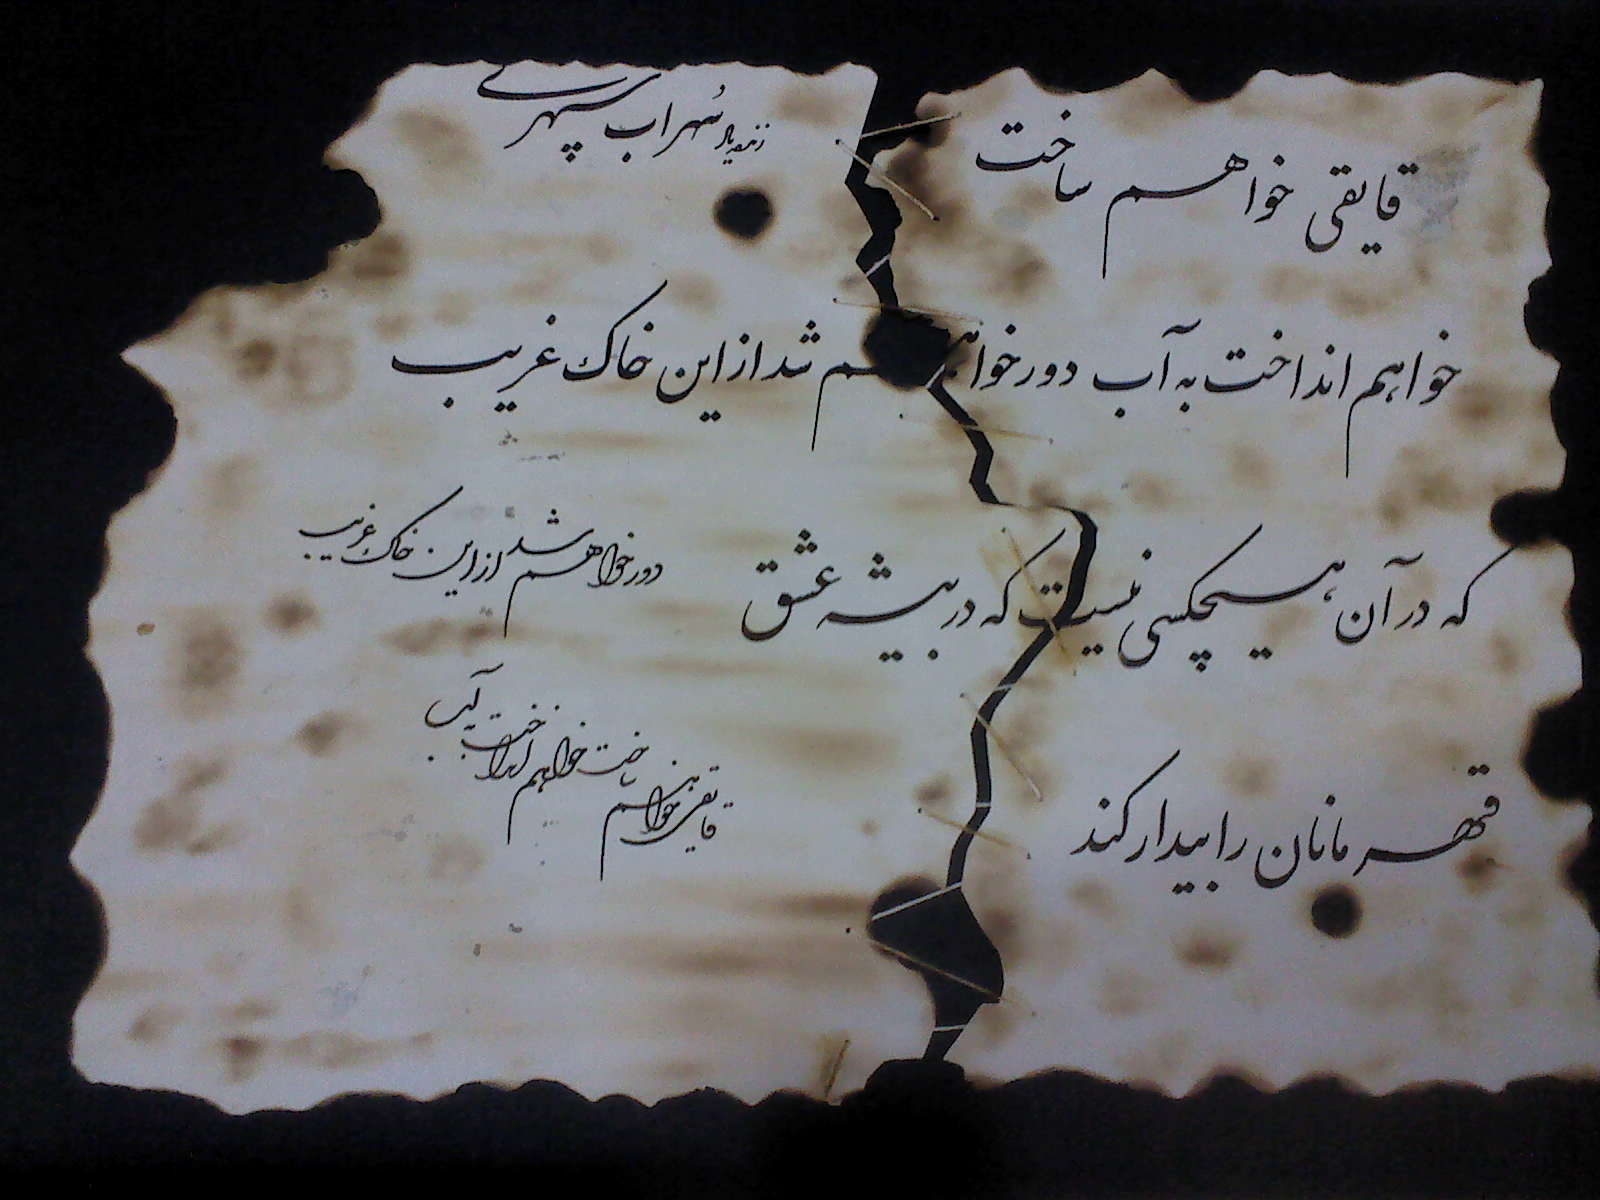 قایقی خواهم ساخت
زنده یاد سُهراب سپهری
خواهم انداخت به آب دور خواهم شد از این خاک غریب
که در آن هیچکسی نیست که در بیشه عشق
دور خواهم شد از این خاک غریب
قایقی خواهم ساخت خواهم انداخت به آب
قهرمانان را بیدار کند